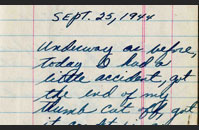 SEPT. 25, 1944
Underway as before,
today I had a
little accident, got
the end of my
thumb cut off, got
it